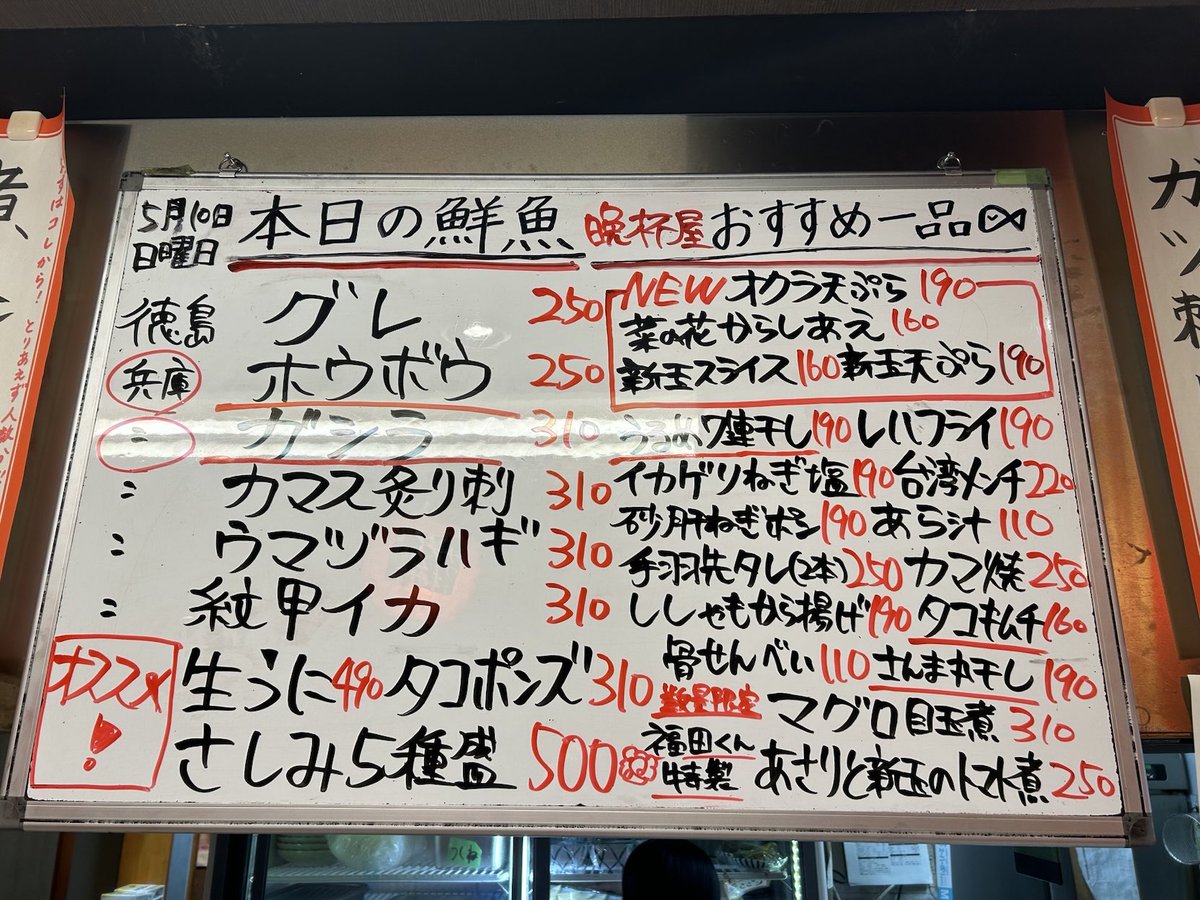 5月10日
日曜日
本日の鮮魚
徳島 グレ 250
兵庫 ホウボウ 250
〃 ガシラ 310
〃 カマス炙り刺 310
〃 ウマヅラハギ 310
〃 紋甲イカ 310
オススメ!
生うに 490 タコポンズ 310
さしみ5種盛 500
晩杯屋おすすめ一品
NEW オクラ天ぷら 190
菜の花からしあえ 160
新玉スライス 160 新玉天ぷら 190
うるめ丸干し 190 レバフライ 190
イカゲソねぎ塩 190 台湾メンチ 220
砂肝ねぎポン 190 あら汁 110
手羽先タレ(2本) 250 カマ焼 250
ししゃもから揚げ 190 タコキムチ 160
骨せんべい 110 さんま丸干し 190
数量限定 マグロ目玉煮 310
福田くん特製 あさりと新玉のトマト煮 250
まずはコレから! とりあえず人数
つくね